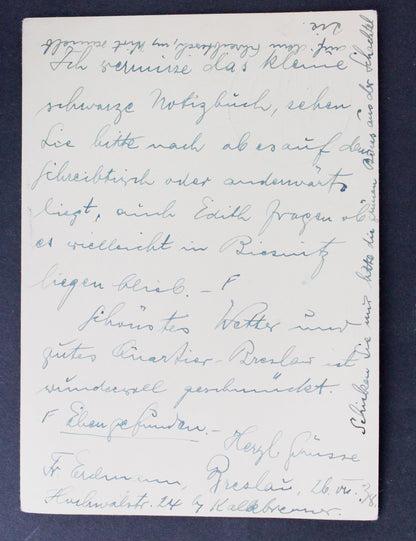 Ich vermisse das kleine
schwarze Notizbuch, sehen
Sie bitte nach ob es auf dem
Schreibtisch oder anderwärts
liegt, auch Edith fragen ob
es vielleicht in Biesnitz
liegen blieb. – F
Schönstes Wetter und
gutes Quartier – Breslau ist
wundervoll geschmückt.
F Eben gefunden. –
Herzl. Grüsse
Fr. Erdmann, Breslau, 26. VII. 38
Hochwaldstr. 24 by Kaldebrenner.
Schicken Sie mir bitte die grünen aus der Schachtel
auf dem Schreibtisch,
die